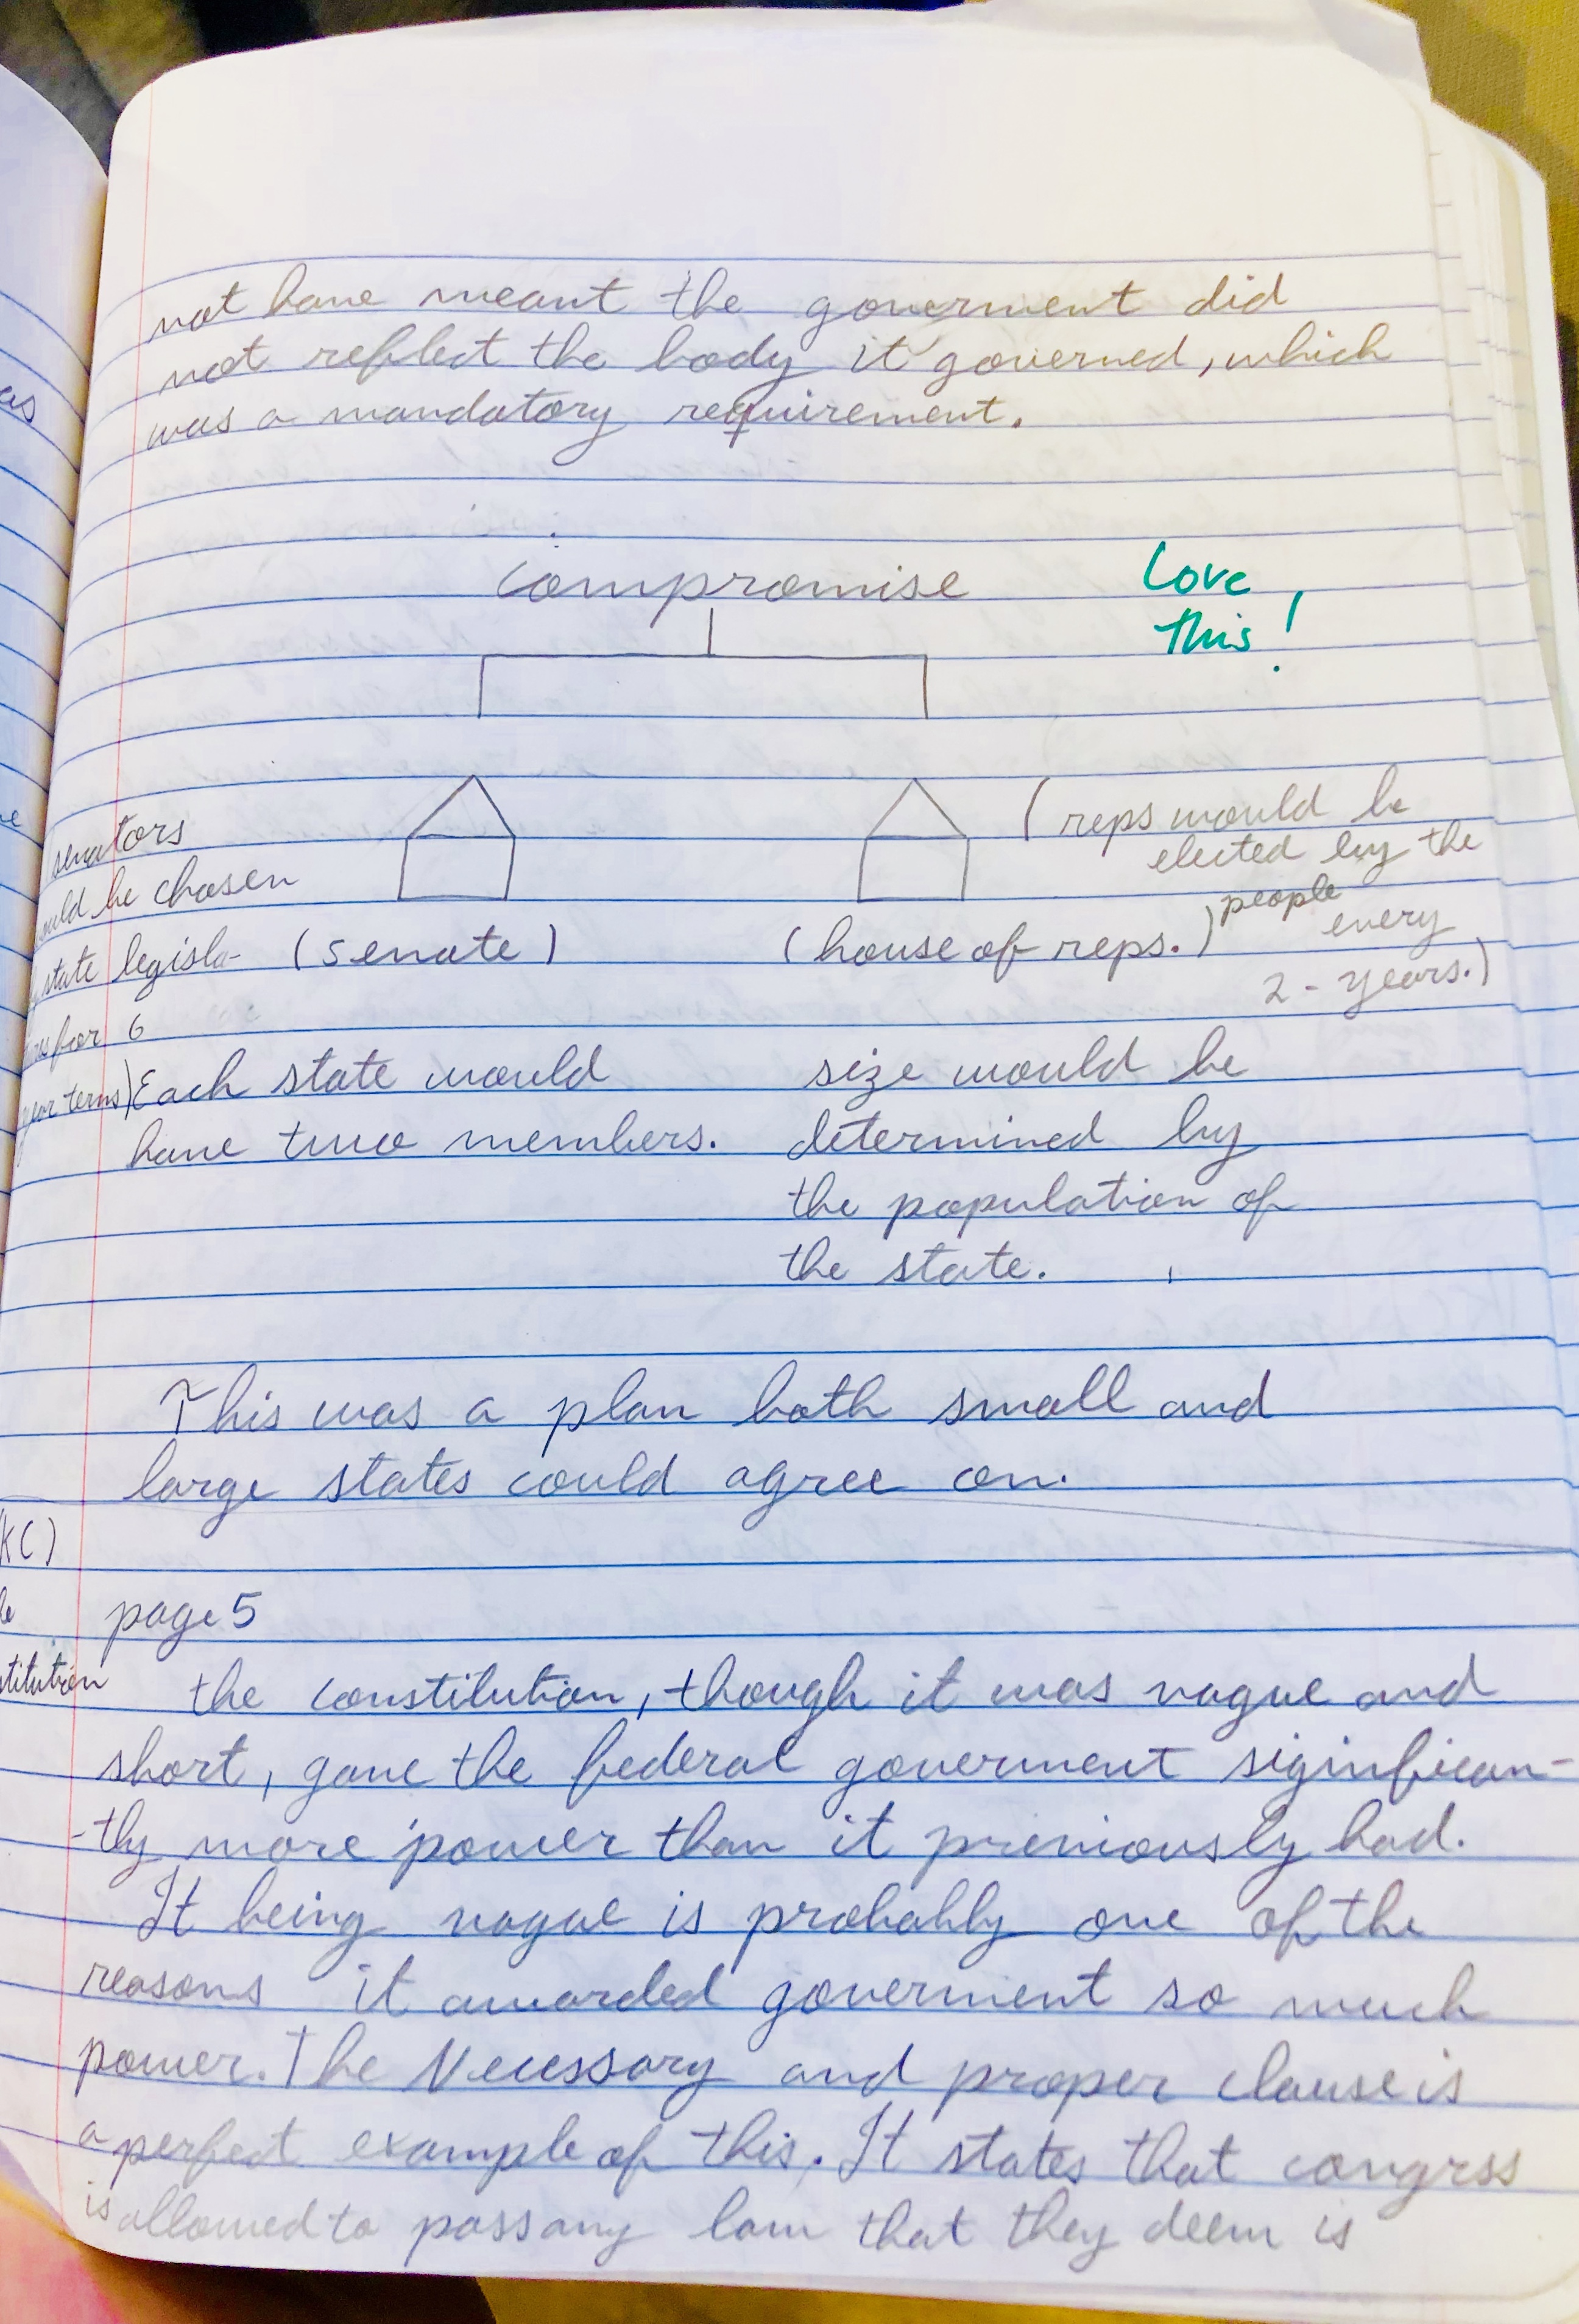 not have meant the goverment did
not reflect the body it governed, which
was a mandatory requirement.
compromise
Love
This!
senators
ould be chosen
state legisla-
for 6
year terms)
(senate)
(house of reps.)
(reps would be
elected by the
people
every
2-years.)
Each state would
have two members.
size would be
determined by
the population of
the state.
This was a plan both small and
large states could agree on.
KC)
page 5
stitution
the constitution, though it was vague and
short, gave the federal goverment siginifican-
-tly more power than it previously had.
It being vague is probably one of the
reasons it awarded goverment so much
power. The Necessary and proper clause is
a perfect example of this. It states that congrss
is allowed to pass any law that they deem is